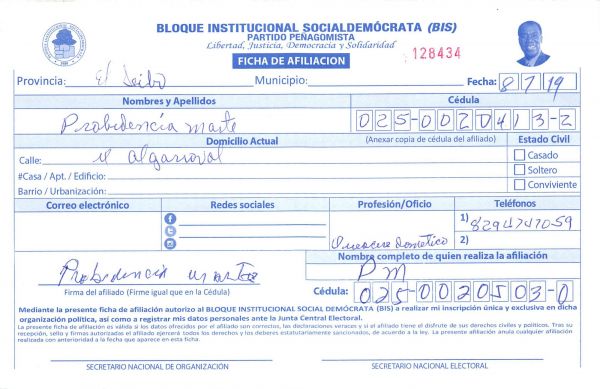 BLOQUE INSTITUCIONAL SOCIALDEMÓCRATA (BIS)
PARTIDO PEÑAGOMISTA
Libertad, Justicia, Democracia y Solidaridad
FICHA DE AFILIACION
128434
Provincia: El Seibo Municipio: Fecha: 8/7/19
Nombres y Apellidos Cédula
Probidencia marte 025-0020413-2
Domicilio Actual (Anexar copia de cédula del afiliado) Estado Civil
Calle: Casado
#Casa / Apt. / Edificio: Soltero
Barrio / Urbanización: Conviviente
Correo electrónico Redes sociales Profesión/Oficio Teléfonos
1) 8294747059
2)
Nombre completo de quien realiza la afiliación
Probidencia P M
Firma del afiliado (Firme igual que en la Cédula) Cédula: 025-0020503-0
Mediante la presente ficha de afiliación autorizo al BLOQUE INSTITUCIONAL SOCIAL DEMÓCRATA (BIS) a realizar mi inscripción única y exclusiva en dicha
organización política, así como a registrar mis datos personales ante la Junta Central Electoral.
La presente ficha de afiliación es válida si los datos ofrecidos por el afiliado son correctos, las declaraciones veraces y si el afiliado tiene el disfrute de sus derechos civiles y políticos. Tras su
recepción, sello y firmas autorizadas el afiliado ejercerá todos los derechos y los deberes estatutariamente sancionados, de acuerdo a la ley. La presente afiliación anula cualquier afiliación
realizada con anterioridad a la fecha que aparece en esta ficha.
SECRETARIO NACIONAL DE ORGANIZACIÓN SECRETARIO NACIONAL ELECTORAL